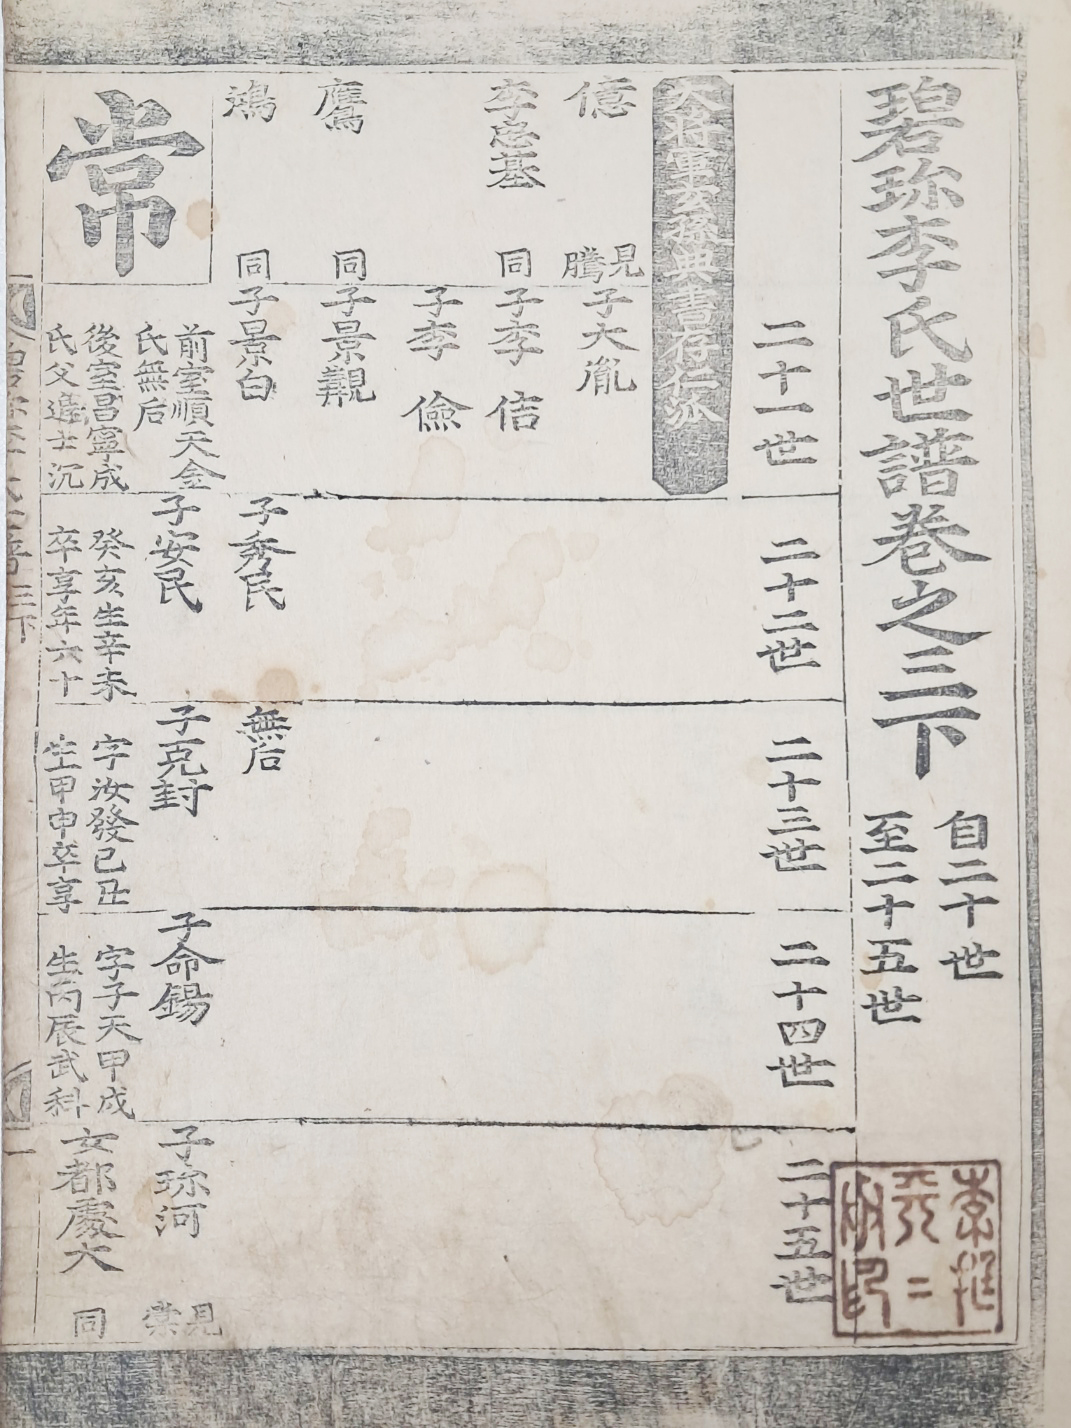 碧珍李氏世譜卷之三下
自二十世
至二十五世
二十一世
二十二世
二十三世
二十四世
二十五世
大將軍玄孫典書存仁派
億
見
騰
子大胤
李忠基
同
子李信
子李儉
鷹
同
子景觀
鴻
同
子景白
子秀民
無后
常
前室順天金
氏無后
後室昌寧成
氏父進士沉
子安民
癸亥生辛未
卒享年六十
子克封
字汝發己丑
生甲申卒享
子命錫
字子天甲戌
生丙辰武科
子珎河
見
棠
女都慶大
同
三下
一